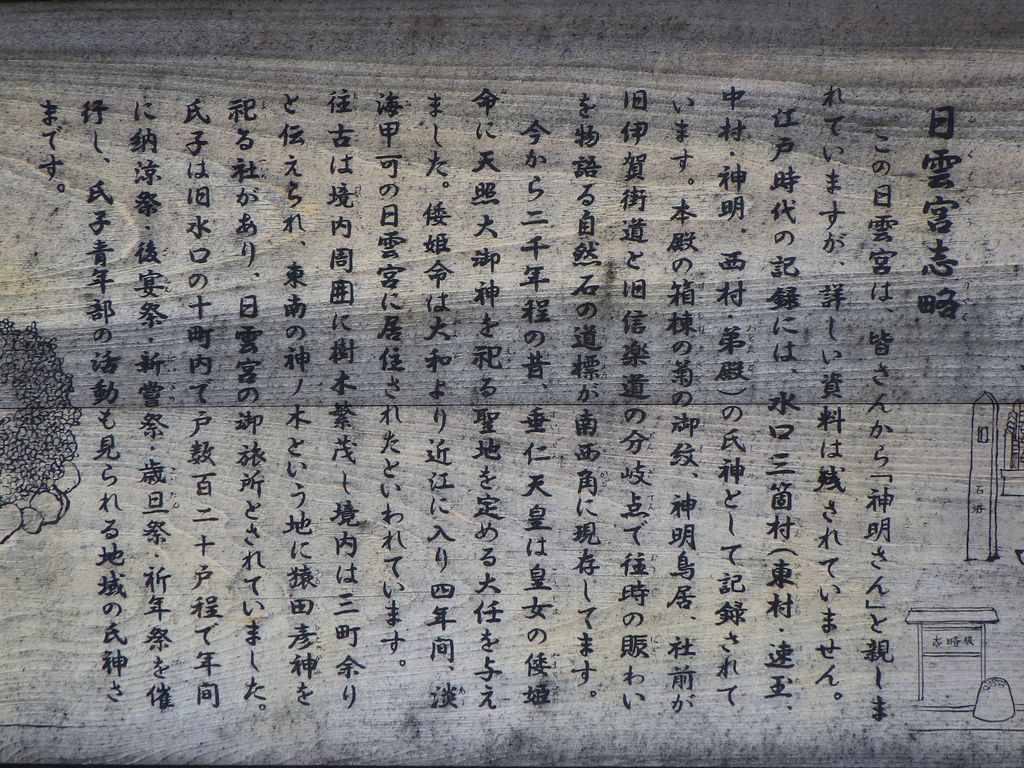 日雲宮志略
この日雲宮は、皆さんから「神明さん」と親しま
れていますが、詳しい資料は残されていません。
江戸時代の記録には、水口三箇村(東村・速玉、
中村・神明、西村・弟殿)の氏神として記録されて
います。本殿の箱棟の菊の御紋、神明鳥居、社前が
旧伊賀街道と旧信楽道の分岐点で往時の賑わい
を物語る自然石の道標が南西角に現存してます。
今から二千年程の昔、垂仁天皇は皇女の倭姫
命に天照大御神を祀る聖地を定める大任を与え
ました。倭姫命は大和より近江に入り四年間、淡
海甲可の日雲宮に居住されたといわれています。
往古は境内周囲に樹木繁茂し境内は三町余り
と伝えられ、東南の神ノ木という地に猿田彦神を
祀る社があり、日雲宮の御旅所とされていました。
氏子は旧水口の十町内で戸数百二十戸程で年間
に納涼祭・後宴祭・新嘗祭・歳旦祭・祈年祭を催
行し、氏子青年部の活動も見られる地域の氏神さ
までです。
石塔